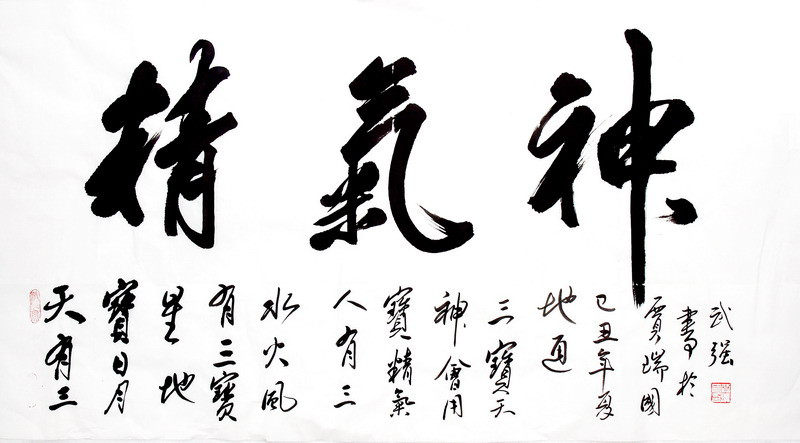 精氣神
天有三
寶日月
星地
有三寶
水火風
人有三
寶精氣
神會用
三寶天
地通
己丑年夏
賈瑞國
書於
武强